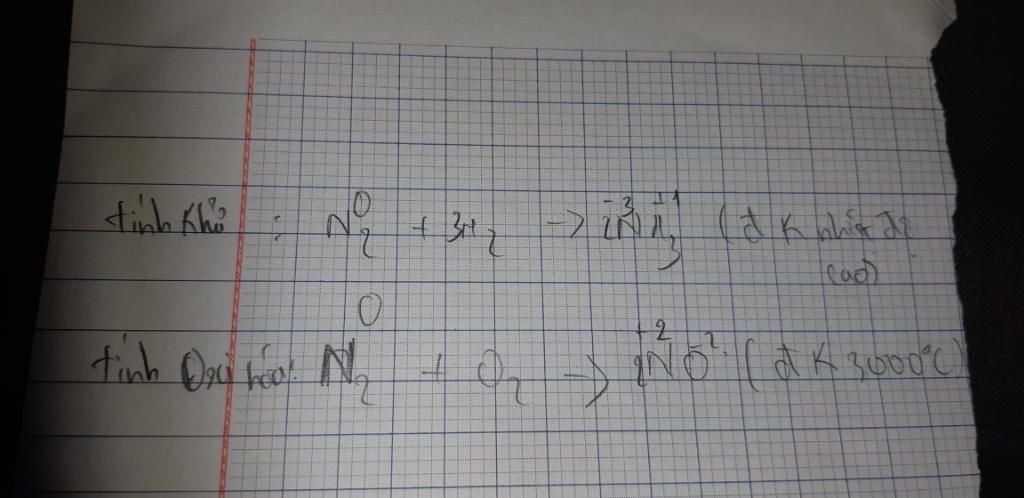 tính khử : N₂⁰ + 3H₂ -> 2N⁻³H₃⁺¹ (đK nhiệt độ
cao)
tính Oxi hóa: N₂⁰ + O₂ -> 2N⁺²O⁻² (đK 3000°C)